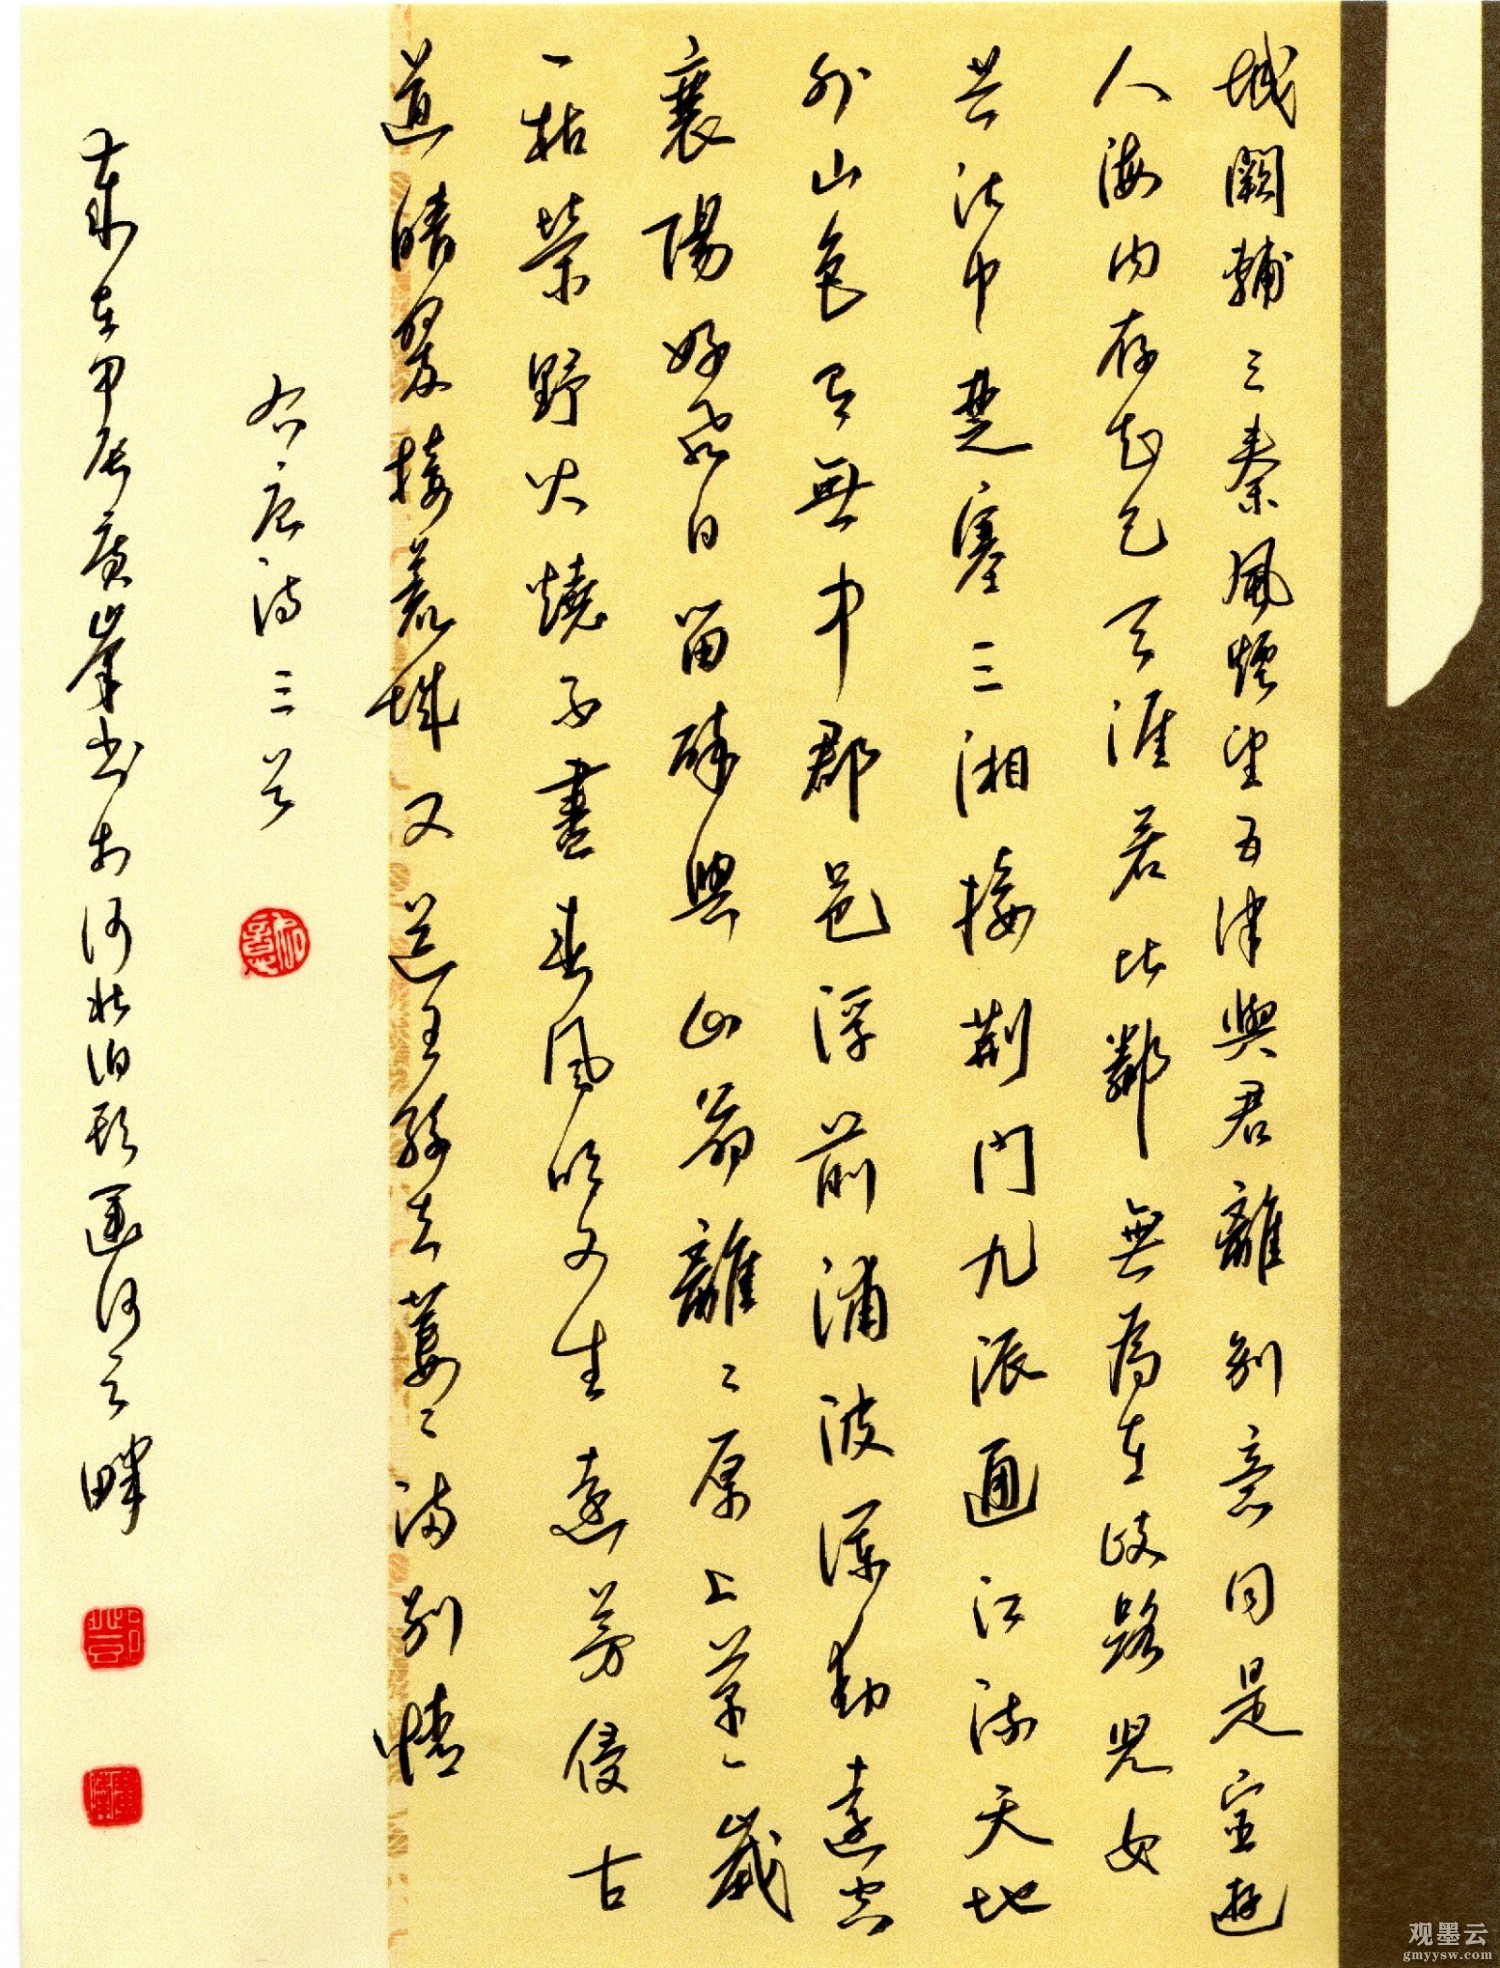 城闕輔三秦風煙望五津與君離別意同是宦遊
人海内存知己天涯若比鄰無為在歧路兒女
共沾巾楚塞三湘接荊門九派通江流天地
外山色有無中郡邑浮前浦波瀾動遠空
襄陽好風日留醉與山翁離〻原上草一歲
一枯榮野火燒不盡春風吹又生遠芳侵古
道晴翠接荒城又送王孫去萋〻滿別情
右唐詩三首
歲在甲辰廣峯书於河北泊頭運河之畔
观墨云
gmyysw.com